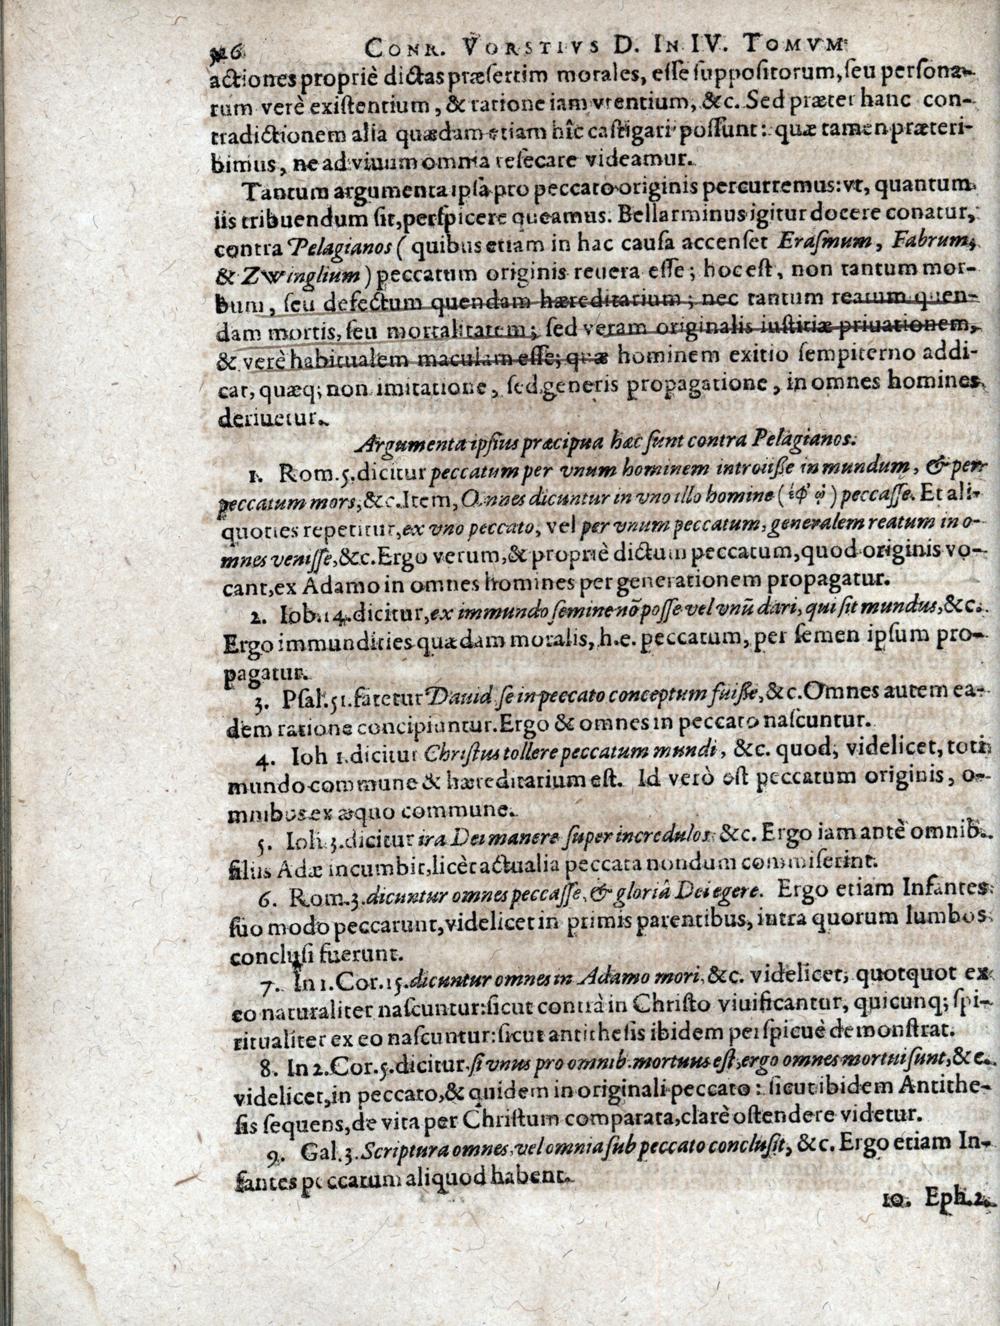 26 CONR. VORSTIVS D. IN IV. TOMVM
actiones propriè dictas præsertim morales, esse suppositorum, seu persona-
rum verè existentium, & ratione iam vtentium, &c. Sed præter hanc con-
tradictionem alia quædam etiam hîc castigari possunt: quæ tamen præteri-
bimus, ne ad viuum omnia resecare videamur.
Tantum argumenta ipsa pro peccato originis percurremus: vt, quantum
iis tribuendum sit, perspicere queamus. Bellarminus igitur docere conatur,
contra Pelagianos (quibus etiam in hac causa accenset Erasmum, Fabrum,
& Zwinglium) peccatum originis reuera esse; hoc est, non tantum mor-
bum, seu defectum quendam hæreditarium; nec tantum reatum quen-
dam mortis, seu mortalitatem; sed veram originalis iustitiæ priuationem,
& verè habitualem maculam esse; quæ hominem exitio sempiterno addi-
cat, quæq; non imitatione, sed generis propagatione, in omnes homines
deriuetur.
Argumenta ipsius præcipua hæc sunt contra Pelagianos.
1. Rom. 5. dicitur peccatum per vnum hominem introiisse in mundum, & per
peccatum mors, &c. Item, Omnes dicuntur in vno illo homine (ἐφ' ᾧ) peccasse. Et ali-
quoties repetitur, ex vno peccato, vel per vnum peccatum, generalem reatum in o-
mnes venisse, &c. Ergo verum, & propriè dictum peccatum, quod originis vo-
cant, ex Adamo in omnes homines per generationem propagatur.
2. Iob. 14. dicitur, ex immundo semine nõ posse vel vnũ dari, qui sit mundus, &c.
Ergo immundities quædam moralis, h.e. peccatum, per semen ipsum pro-
pagatur.
3. Psal. 51. fatetur Dauid se in peccato conceptum fuisse, &c. Omnes autem ea-
dem ratione concipiuntur. Ergo & omnes in peccato nascuntur.
4. Ioh 1. dicitur Christus tollere peccatum mundi, &c. quod, videlicet, toti
mundo commune & hæreditarium est. Id verò est peccatum originis, o-
mnibus ex æquo commune.
5. Ioh. 3. dicitur ira Dei manere super incredulos, &c. Ergo iam antè omnib.
filiis Adæ incumbit, licèt actualia peccata nondum commiserint.
6. Rom. 3. dicuntur omnes peccasse, & gloriâ Dei egere. Ergo etiam Infantes
suo modo peccarunt, videlicet in primis parentibus, intra quorum lumbos
conclusi fuerunt.
7. In 1. Cor. 15. dicuntur omnes in Adamo mori, &c. videlicet, quotquot ex
eo naturaliter nascuntur: sicut contrà in Christo viuificantur, quicunq; spi-
ritualiter ex eo nascuntur: sicut antithesis ibidem perspicuè demonstrat.
8. In 2. Cor. 5. dicitur. si vnus pro omnib. mortuus est, ergo omnes mortui sunt, &c.
videlicet, in peccato, & quidem in originali peccato: sicut ibidem Antithe-
sis sequens, de vita per Christum comparata, clarè ostendere videtur.
9. Gal. 3. Scriptura omnes, vel omnia sub peccato conclusit, &c. Ergo etiam In-
fantes peccatum aliquod habent.
10. Eph. 2.